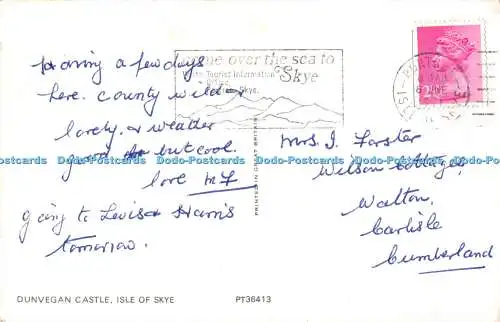 Having a few days
here. County wild &
lovely & weather
good but cool.
love
going to Lewis & Harris
tomorrow.
come over the sea to
Skye
Tourist Information
Skye.
PRINTED IN GREAT BRITAIN
Mrs J. Forster
Wilson Cottages,
Walton,
Carlisle
Cumberland
Dodo-Postcards Dodo-Postcards Dodo-Postcards Dodo-Postcards Dodo-Postcards
DUNVEGAN CASTLE, ISLE OF SKYE
PT36413